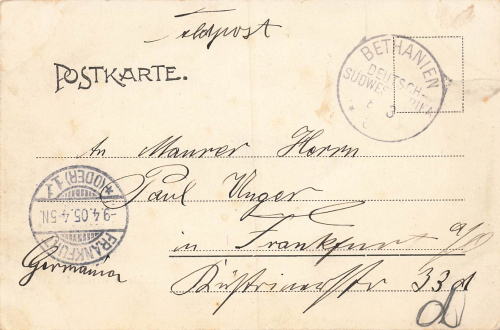 Feldpost
POSTKARTE.
BETHANIEN
DEUTSCH-
SÜDWEST
3
An Maurer Herrn
Paul Unger
in Frankfurt a/O
33 d
Germania
FRANKFURT
-9.4.05.4-5N.
(ODER) 1
d